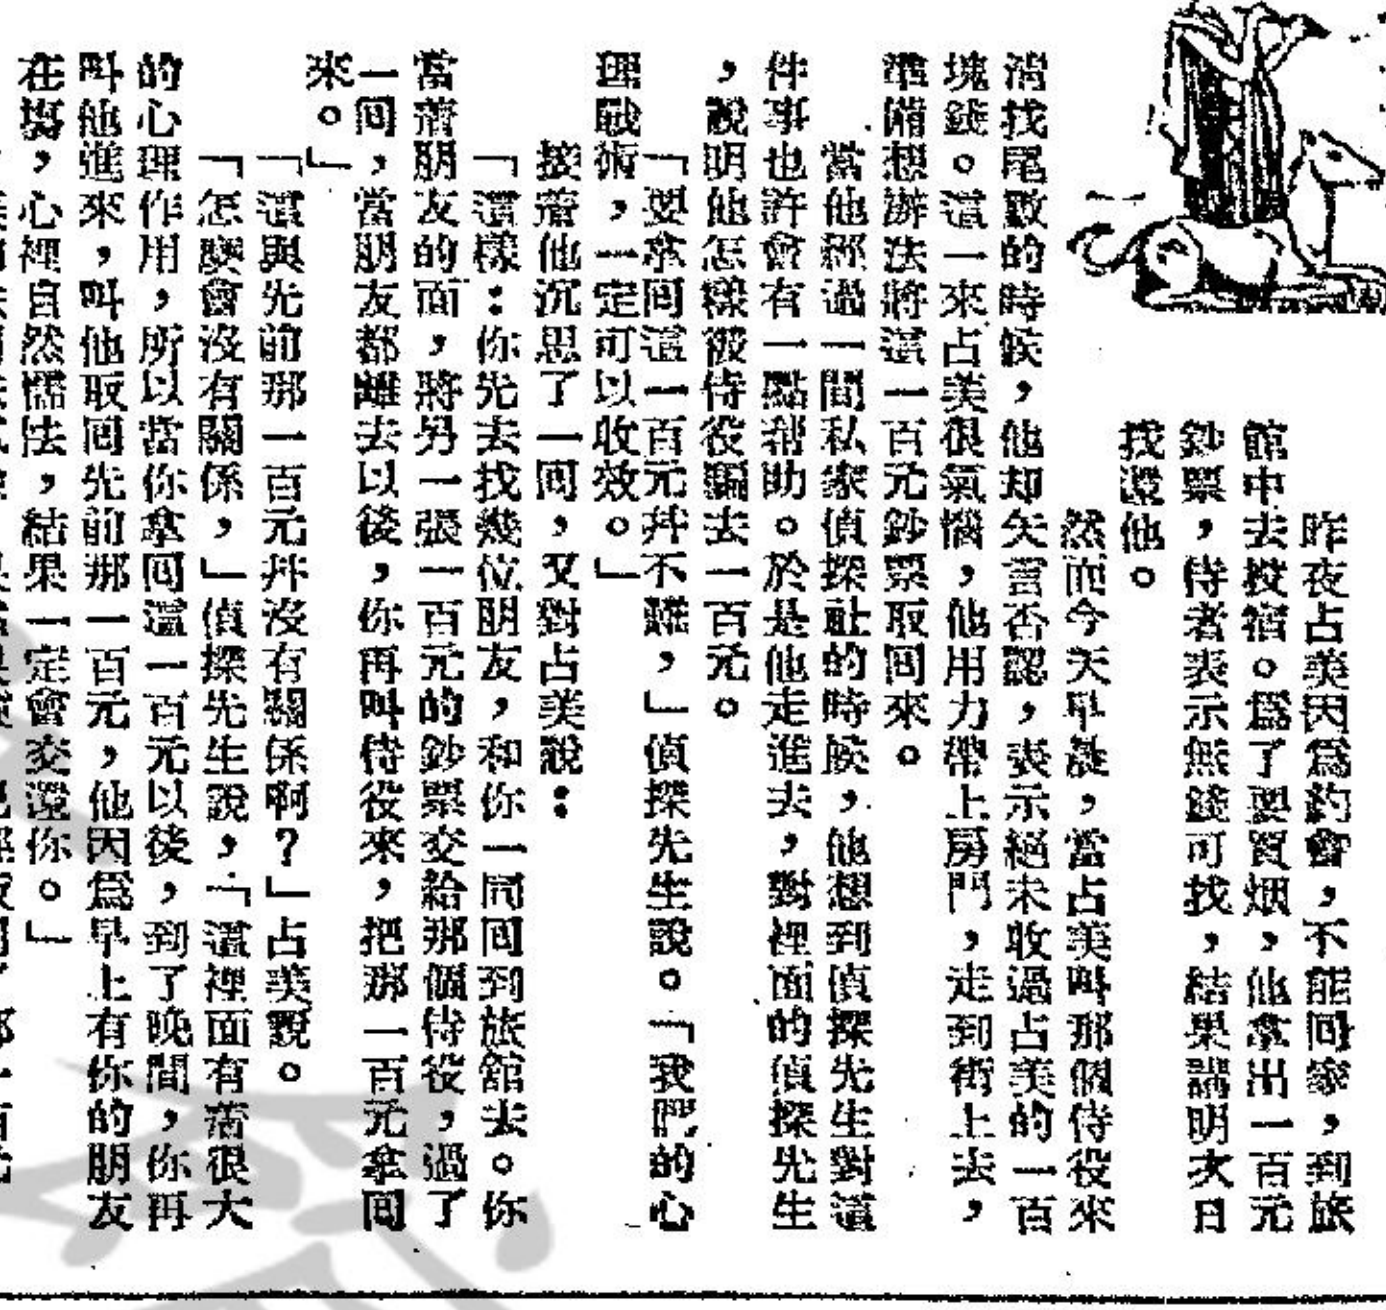 昨夜占美因爲約會，不能囘家，到旅
館中去投宿。爲了要買烟，他拿出一百元
鈔票，侍者表示無錢可找，結果講明次日
找還他。
然而今天早晨，當占美叫那個侍役來
淸找尾數的時候，他却矢言否認，表示絕未收過占美的一百
塊錢。這一來占美很氣惱，他用力帶上房門，走到街上去，
準備想辦法將這一百元鈔票取囘來。
當他經過一間私家偵探社的時候，他想到偵探先生對這
件事也許會有一點帮助。於是他走進去，對裡面的偵探先生
，說明他怎樣被侍役騙去一百元。
「要拿囘這一百元幷不難，」偵探先生說。「我們的心
理戰術，一定可以收效。」
接着他沉思了一囘，又對占美說：
「這樣：你先去找幾位朋友，和你一同囘到旅舘去。你
當着朋友的面，將另一張一百元的鈔票交給那個侍役，過了
一囘，當朋友都離去以後，你再叫侍役來，把那一百元拿囘
來。」
「這與先前那一百元幷沒有關係啊？」占美說。
「怎麽會沒有關係，」偵探先生說，「這裡面有着很大
的心理作用，所以當你拿囘這一百元以後，到了晚間，你再
叫他進來，叫他取囘先前那一百元，他因爲早上有你的朋友
在塲，心裡自然懦怯，結果一定會交還你。」